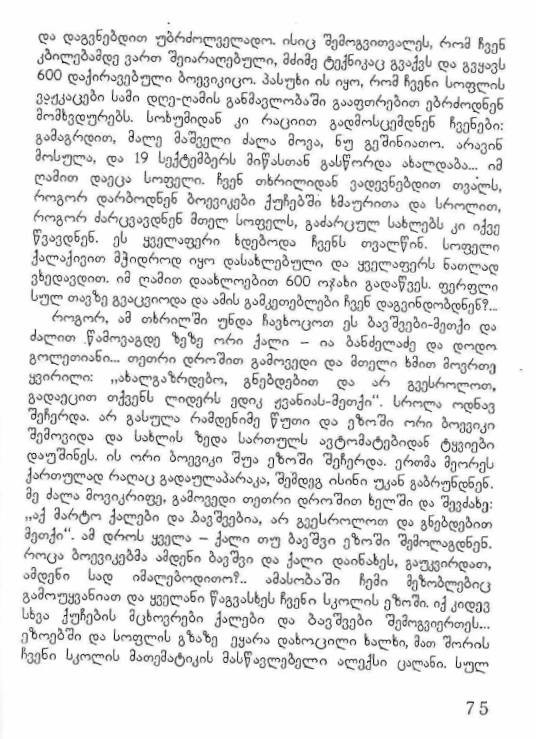 და დაგვნებდით უბრძოლველადო. ისიც შემოგვითვალეს, რომ ჩვენ
კბილებამდე ვართ შეიარაღებული, მძიმე ტექნიკაც გვაქვს და გვყავს
600 დაქირავებული ბოევიკიცო. პასუხი ის იყო, რომ ჩვენი სოფლის
ვაჟკაცები სამი დღე-ღამის განმავლობაში გააფთრებით ებრძოდნენ
მომხვდურებს. სოხუმიდან კი რაციით გადმოსცემდნენ ჩვენები:
გამაგრდით, მალე მაშველი ძალა მოვა, ნუ გეშინიათო. არავინ
მოსულა, და 19 სექტემბერს მიწასთან გასწორდა ახალდაბა... იმ
ღამით დაეცა სოფელი. ჩვენ თხრილიდან ვადევნებდით თვალს,
როგორ დარბოდნენ ბოევიკები ქუჩებში ხმაურითა და სროლით,
როგორ ძარცვავდნენ მთელ სოფელს, გაძარცულ სახლებს კი იქვე
წვავდნენ. ეს ყველაფერი ხდებოდა ჩვენს თვალწინ. სოფელი
ქალაქივით მჭიდროდ იყო დასახლებული და ყველაფერს ნათლად
ვხედავდით. იმ ღამით დაახლოებით 600 ოჯახი გადაწვეს. ფერფლი
სულ თავზე გვაცვიოდა და ამის გამკეთებლები ჩვენ დაგვინდობდნენ?...
როგორ, ამ თხრილში უნდა ჩავხოცოთ ეს ბავშვები-მეთქი და
ძალით წამოვაგდე ზეზე ორი ქალი – ია ბანძელაძე და დოდო
გოლეთიანი... თეთრი დროშით გამოვედი და მთელი ხმით მოვრთე
ყვირილი: „ახალგაზრდებო, გნებდებით და არ გვესროლოთ,
გადაეცით თქვენს ლიდერს ედიკ ჟვანიას-მეთქი“. სროლა ოდნავ
შეჩერდა. არ გასულა რამდენიმე წუთი და ეზოში ორი ბოევიკი
შემოვიდა და სახლის ზედა სართულს ავტომატებიდან ტყვიები
დაუშინეს. ის ორი ბოევიკი შუა ეზოში შეჩერდა. ერთმა მეორეს
ქართულად რაღაც გადაულაპარაკა, შემდეგ ისინი უკან გაბრუნდნენ.
მე ძალა მოვიკრიფე, გამოვედი თეთრი დროშით ხელში და შევძახე:
„აქ მარტო ქალები და ბავშვებია, არ გვესროლოთ და გნებდებით
მეთქი“. ამ დროს ყველა – ქალი თუ ბავშვი ეზოში შემოლაგდნენ.
როცა ბოევიკებმა ამდენი ბავშვი და ქალი დაინახეს, გაუკვირდათ,
ამდენი სად იმალებოდითო?.. ამასობაში ჩემი მეზობლებიც
გამოუყვანიათ და ყველანი წაგვასხეს ჩვენი სკოლის ეზოში. იქ კიდევ
სხვა ქუჩების მცხოვრები ქალები და ბავშვები შემოგვიერთეს...
ეზოებში და სოფლის გზაზე ეყარა დახოცილი ხალხი, მათ შორის
ჩვენი სკოლის მათემატიკის მასწავლებელი ალექსი ცალანი. სულ
75